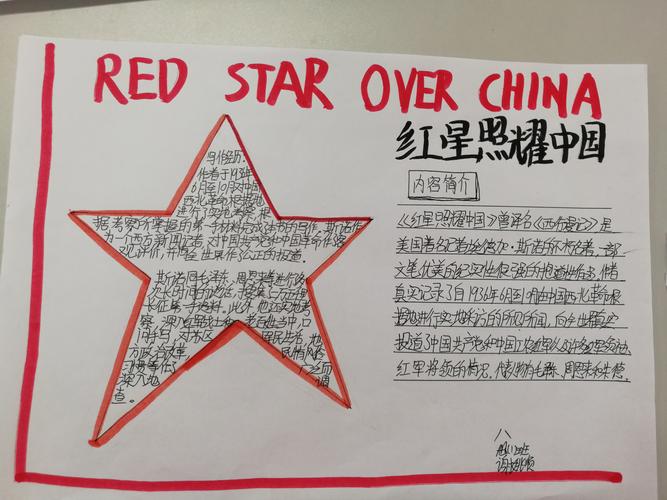 RED STAR OVER CHINA
红星照耀中国
内容简介
写作经历:
作者于1936年
6月至10月对中国
西北革命根据地
进行了实地考察,根
据考察所掌握的第一手材料完成 的写作,斯诺作
为一个西方新闻记者,对中国共产党和中国革命作客
观评价,并向全世界作公正的报道。
斯诺同毛泽东、周恩来等进行多
次长时间的谈话,
长征第一手资料,此外,他还实地考
察,深入红军战士和老百姓当中,口
问手写,对苏区 军民生活,地
方政治改革, 民情风俗
习惯等作了 广泛而
深入地 调
查。
《红星照耀中国》曾译名《西行漫记》是
美国著名记者埃德加·斯诺的代表作,一部
文笔优美的纪实性很强的报道性作品,作者
真实记录了自1936年6月到10月在中国西北革命根
据地进行实地采访的所见所闻,向全世界
报道了中国共产党和中国工农红军以及许多红军领袖,
红军将领的情况。 毛泽东,周恩来和朱德,
八